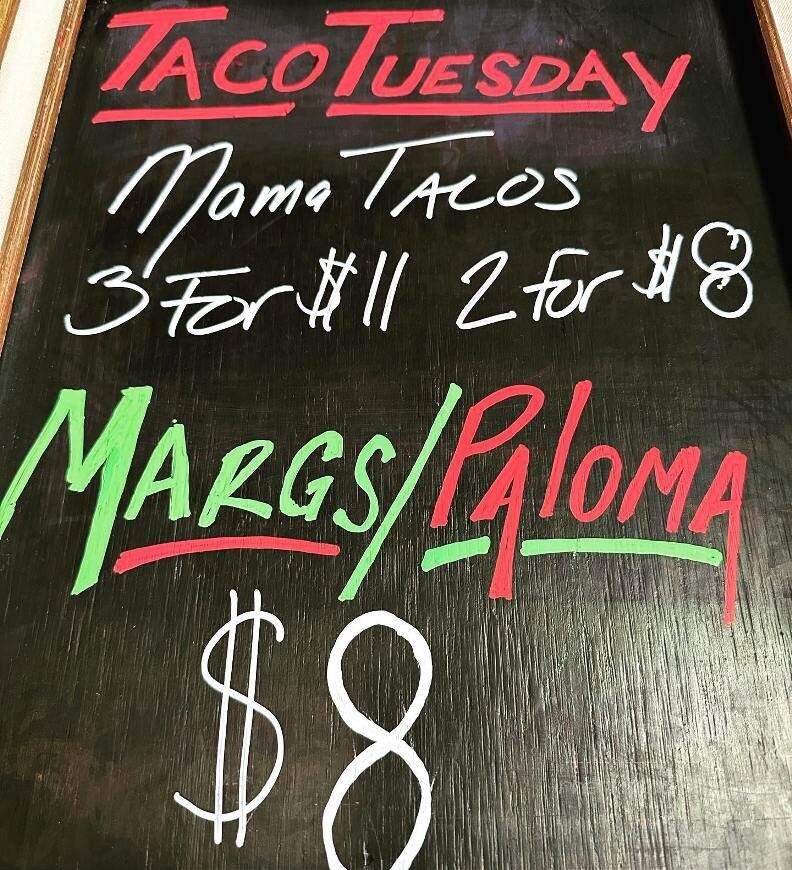 TACO TUESDAY
Mama TACOS
3 For $11 2 for $8
MARGS/PALOMA
$8